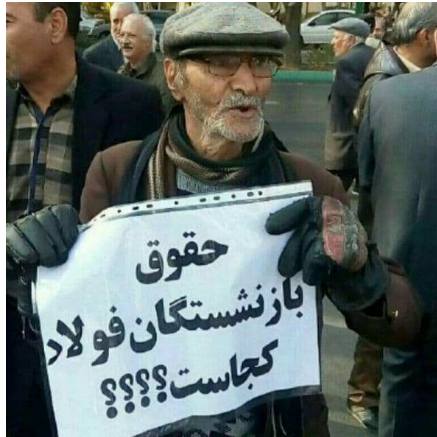 حقوق
بازنشستگان فولاد
کجاست؟؟؟؟